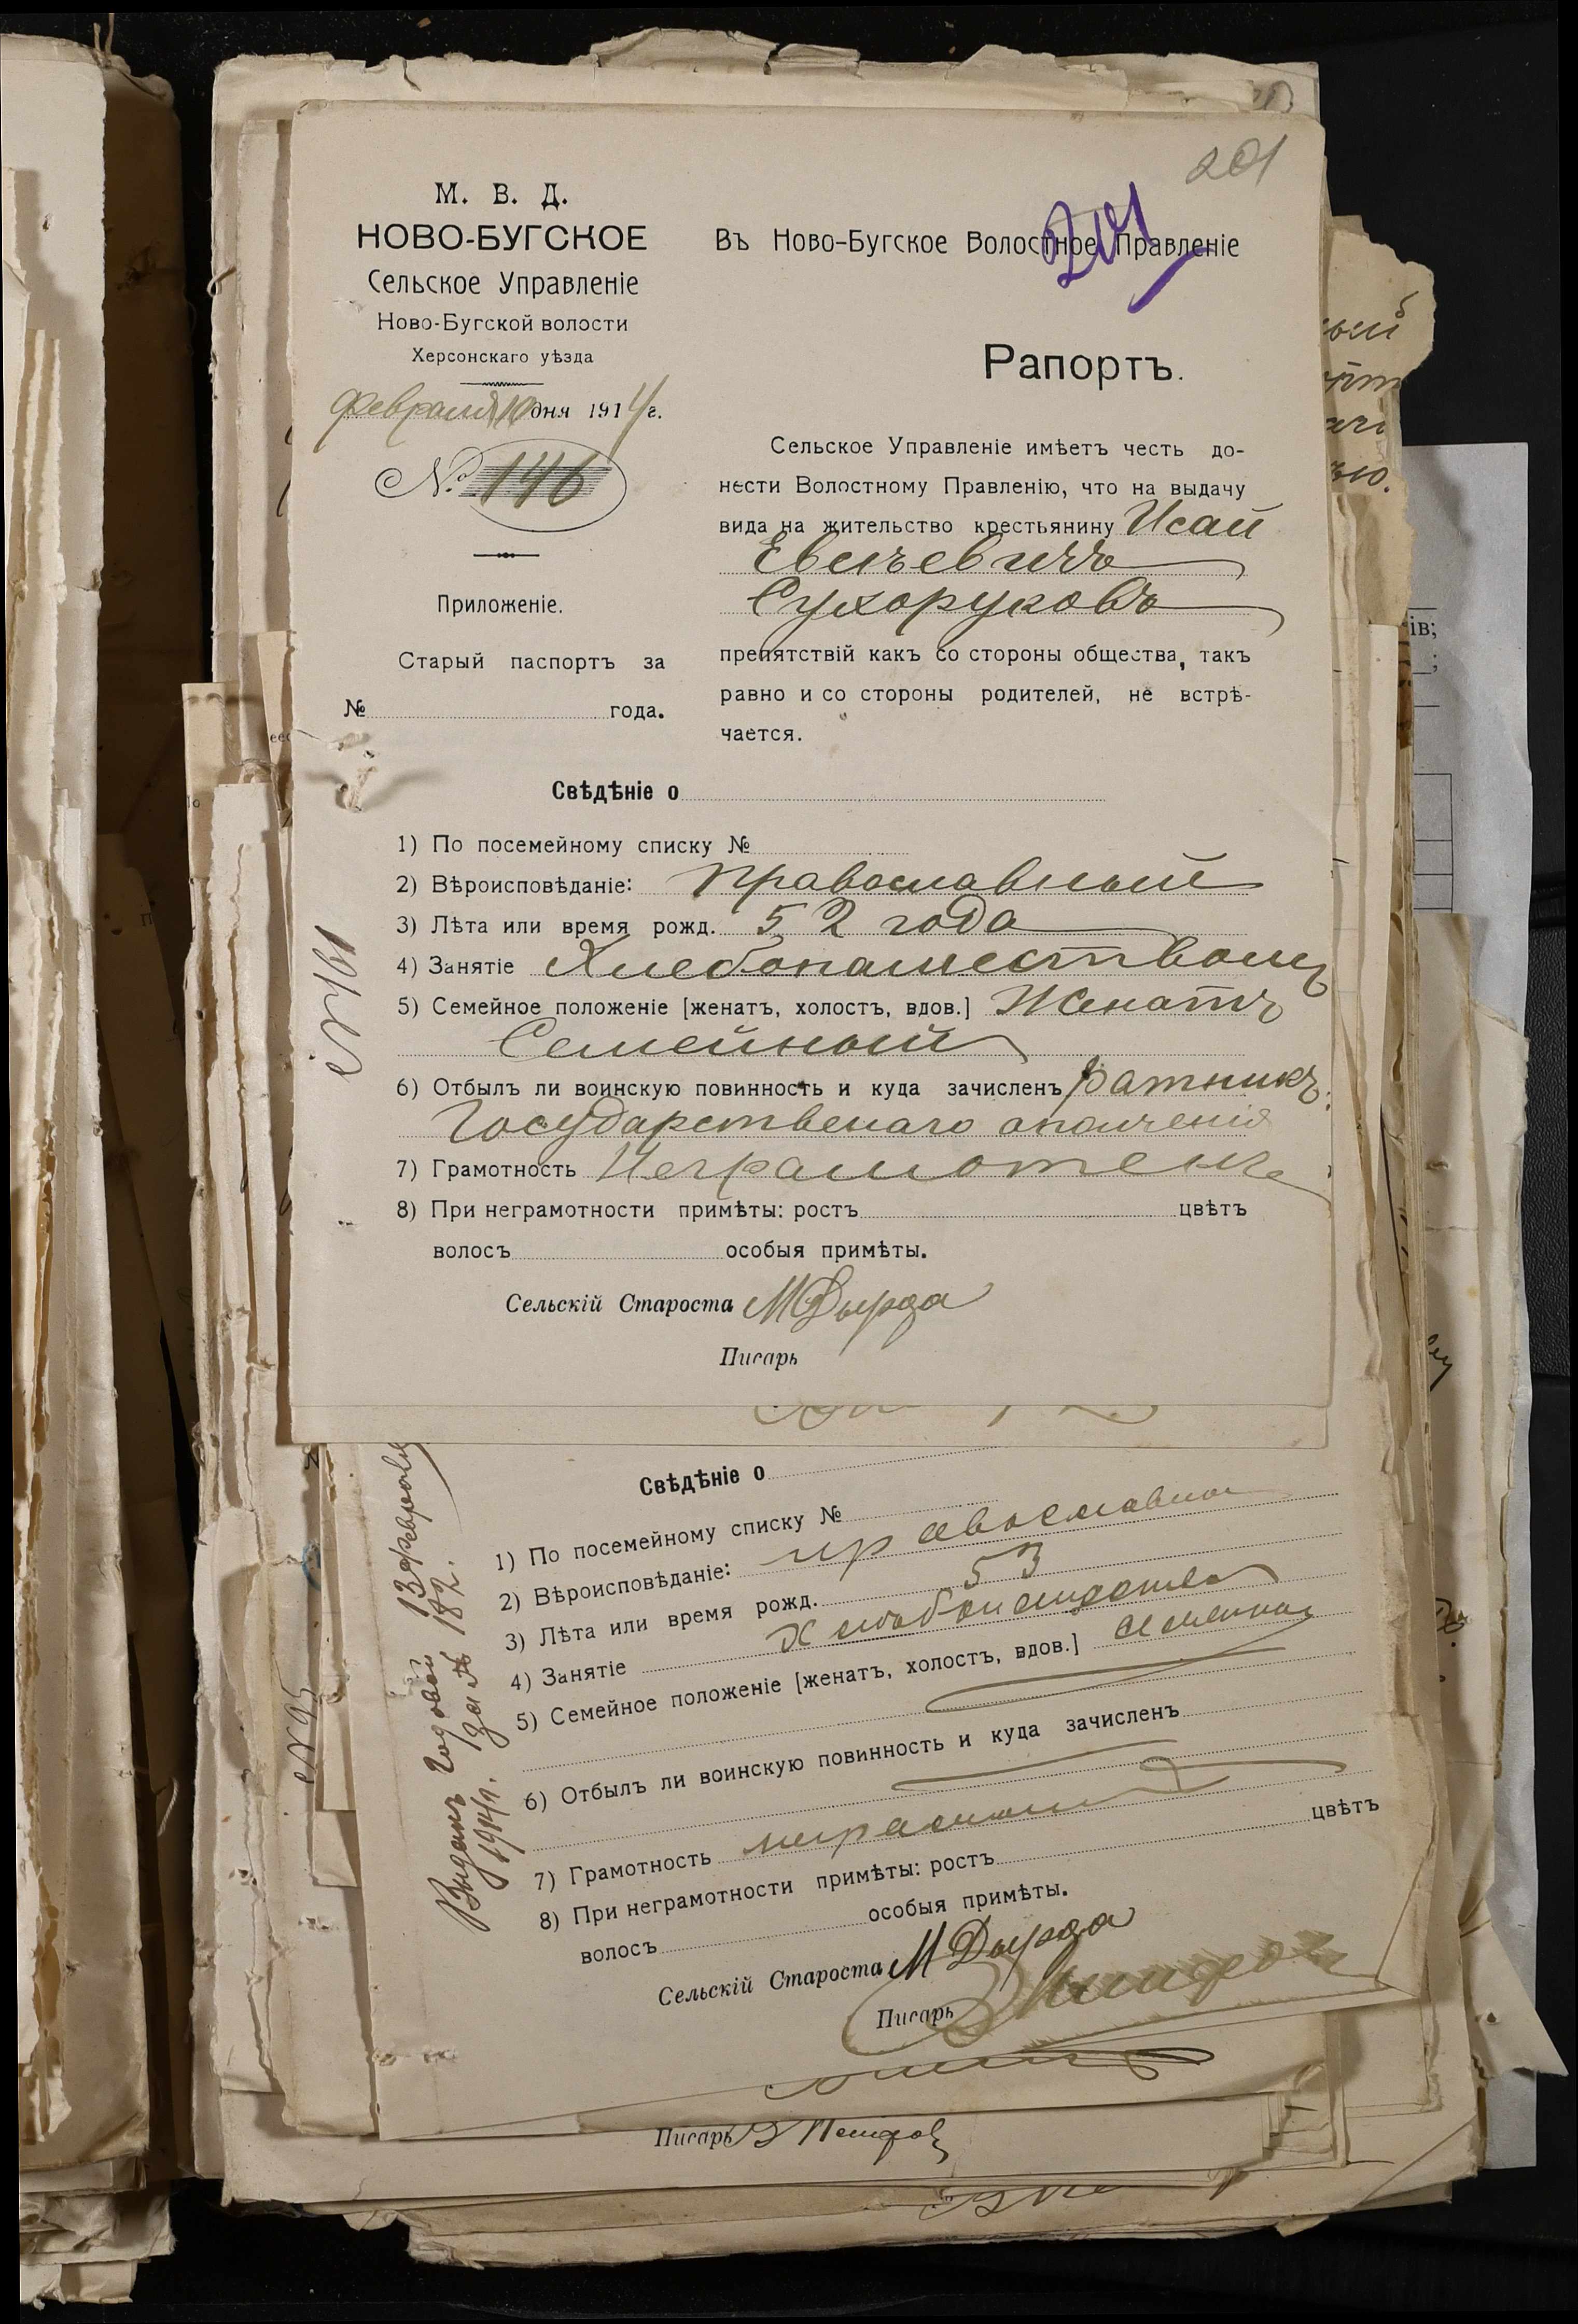 201
201
М. В. Д.
НОВО-БУГСКОЕ
Сельское Управленіе
Ново-Бугской волости
Херсонскаго уѣзда
Февраля 10 дня 1914 г.
№ 146
Приложеніе.
Старый паспортъ за
№ года.
Въ Ново-Бугское Волостное Правленіе
Рапортъ.
Сельское Управленіе имѣетъ честь до-
нести Волостному Правленію, что на выдачу
вида на жительство крестьянину Исай
Евсѣевичъ
Сухоруковъ
препятствій какъ со стороны общества, такъ
равно и со стороны родителей, не встрѣ-
чается.
Свѣдѣніе о
1) По посемейному списку №
2) Вѣроисповѣданіе: православный
3) Лѣта или время рожд. 52 года
4) Занятіе Хлебопашествомъ
5) Семейное положеніе [женатъ, холостъ, вдов.] Женатъ
Семейный
6) Отбылъ ли воинскую повинность и куда зачисленъ ратникъ
Государственаго ополченія
7) Грамотность Неграмотенъ
8) При неграмотности примѣты: ростъ цвѣтъ
волосъ особыя примѣты.
Сельскій Староста МДырда
Писарь
№ 161
Свѣдѣніе о
1) По посемейному списку №
2) Вѣроисповѣданіе: православна
3) Лѣта или время рожд. 53
4) Занятіе
5) Семейное положеніе [женатъ, холостъ, вдов.]
6) Отбылъ ли воинскую повинность и куда зачисленъ
7) Грамотность
8) При неграмотности примѣты: ростъ цвѣтъ
волосъ особыя примѣты.
Сельскій Староста М Дырда
Писарь
Выданъ Годовой 13 февраля
1914 г. за № 182.
№ 95
Писарь